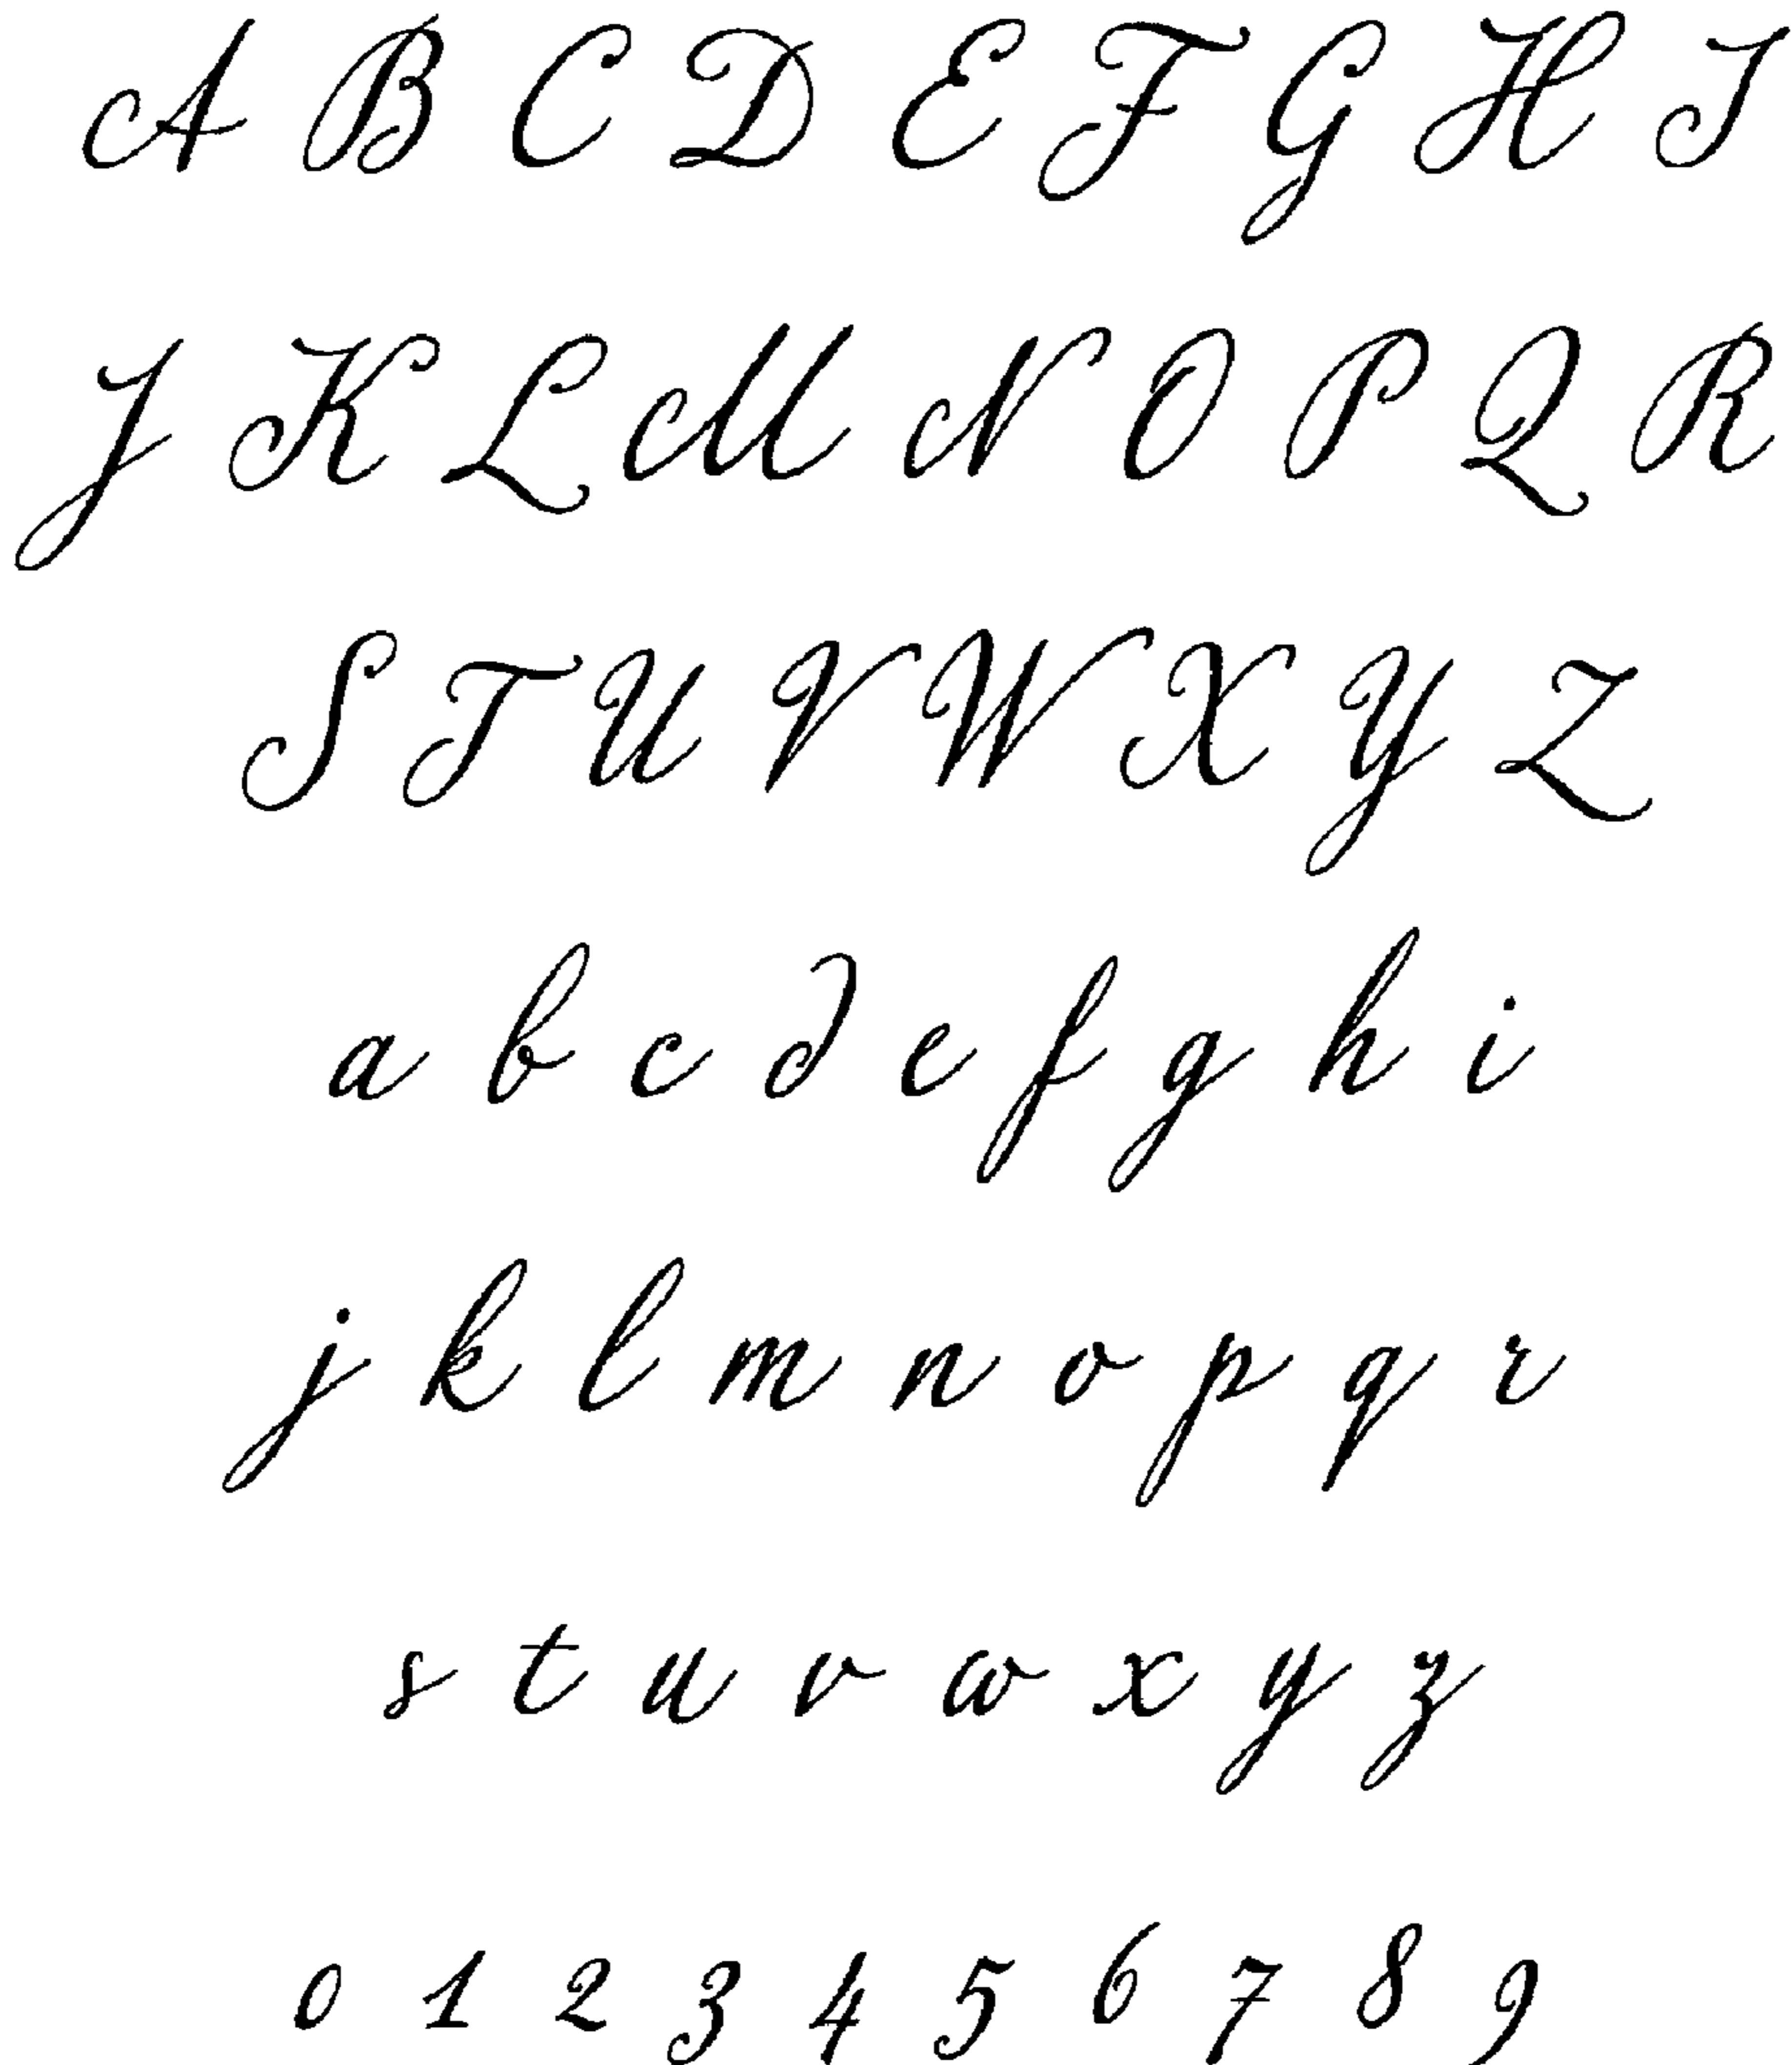 A B C D E F G H I
J K L M N O P Q R
S T U V W X Y Z
a b c d e f g h i
j k l m n o p q r
s t u v w x y z
0 1 2 3 4 5 6 7 8 9